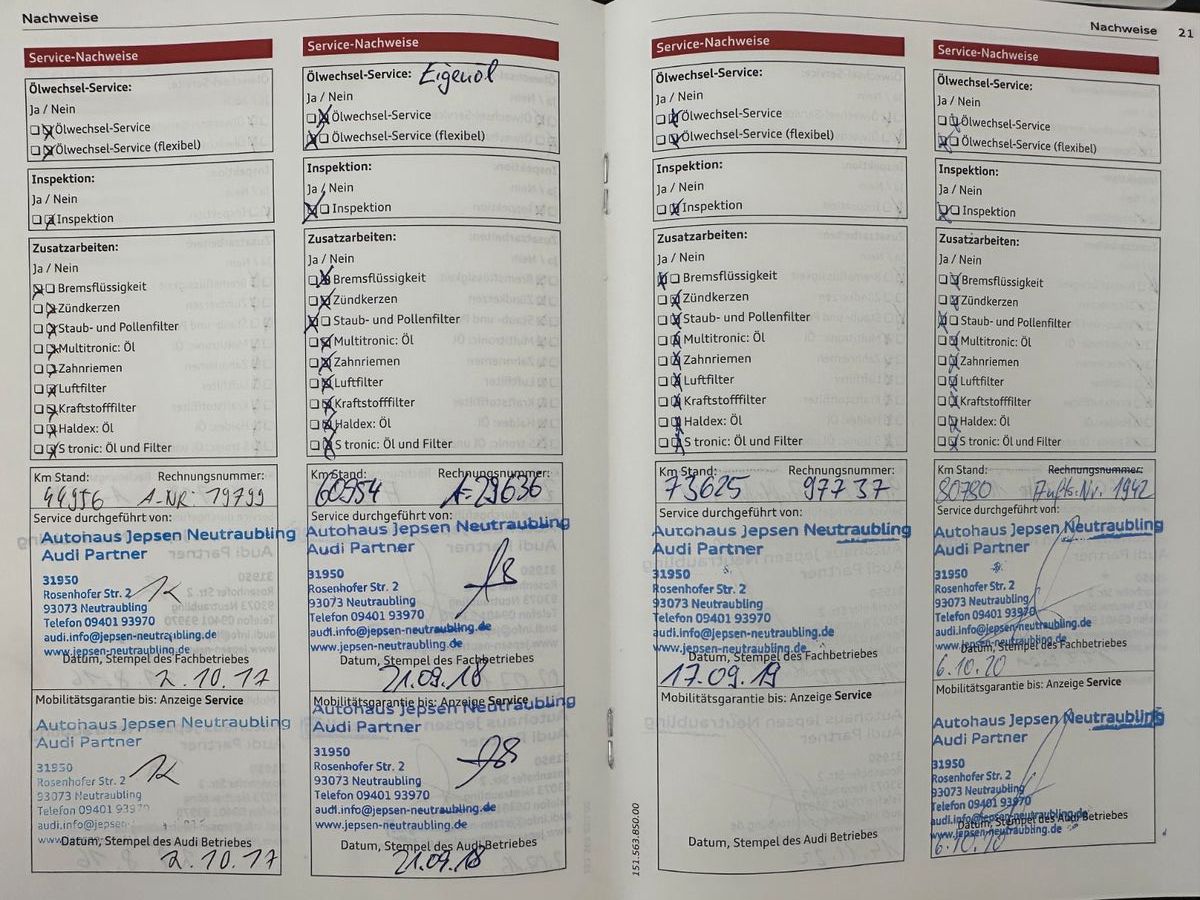 Nachweise
Service-Nachweise
Ölwechsel-Service:
Ja / Nein
Ölwechsel-Service
Ölwechsel-Service (flexibel)
Inspektion:
Ja / Nein
Inspektion
Zusatzarbeiten:
Ja / Nein
Bremsflüssigkeit
Zündkerzen
Staub- und Pollenfilter
Multitronic: Öl
Zahnriemen
Luftfilter
Kraftstofffilter
Haldex: Öl
S tronic: Öl und Filter
Km Stand: Rechnungsnummer:
44956 A-NR: 19799
Service durchgeführt von:
Autohaus Jepsen Neutraubling
Audi Partner
31950
Rosenhofer Str. 2
93073 Neutraubling
Telefon 09401 93970
audi.info@jepsen-neutraubling.de
www.jepsen-neutraubling.de
Datum, Stempel des Fachbetriebes
2.10.17
Mobilitätsgarantie bis: Anzeige Service
Autohaus Jepsen Neutraubling
Audi Partner
31950
Rosenhofer Str. 2
93073 Neutraubling
Telefon 09401 93970
audi.info@jepsen-
www.
Datum, Stempel des Audi Betriebes
2.10.17
Service-Nachweise
Ölwechsel-Service: Eigenöl
Ja / Nein
Ölwechsel-Service
Ölwechsel-Service (flexibel)
Inspektion:
Ja / Nein
Inspektion
Zusatzarbeiten:
Ja / Nein
Bremsflüssigkeit
Zündkerzen
Staub- und Pollenfilter
Multitronic: Öl
Zahnriemen
Luftfilter
Kraftstofffilter
Haldex: Öl
S tronic: Öl und Filter
Km Stand: Rechnungsnummer:
60954 A-29636
Service durchgeführt von:
Autohaus Jepsen Neutraubling
Audi Partner
31950
Rosenhofer Str. 2
93073 Neutraubling
Telefon 09401 93970
audi.info@jepsen-neutraubling.de
www.jepsen-neutraubling.de
Datum, Stempel des Fachbetriebes
21.09.18
Mobilitätsgarantie bis: Anzeige Service
Autohaus Jepsen Neutraubling
Audi Partner
31950
Rosenhofer Str. 2
93073 Neutraubling
Telefon 09401 93970
audi.info@jepsen-neutraubling.de
www.jepsen-neutraubling.de
Datum, Stempel des Audi Betriebes
21.09.18
Service-Nachweise
Ölwechsel-Service:
Ja / Nein
Ölwechsel-Service
Ölwechsel-Service (flexibel)
Inspektion:
Ja / Nein
Inspektion
Zusatzarbeiten:
Ja / Nein
Bremsflüssigkeit
Zündkerzen
Staub- und Pollenfilter
Multitronic: Öl
Zahnriemen
Luftfilter
Kraftstofffilter
Haldex: Öl
S tronic: Öl und Filter
Km Stand: Rechnungsnummer:
73625 97737
Service durchgeführt von:
Autohaus Jepsen Neutraubling
Audi Partner
31950
Rosenhofer Str. 2
93073 Neutraubling
Telefon 09401 93970
audi.info@jepsen-neutraubling.de
www.jepsen-neutraubling.de
Datum, Stempel des Fachbetriebes
17.09.19
Mobilitätsgarantie bis: Anzeige Service
Datum, Stempel des Audi Betriebes
151.563.850.00
Nachweise 21
Service-Nachweise
Ölwechsel-Service:
Ja / Nein
Ölwechsel-Service
Ölwechsel-Service (flexibel)
Inspektion:
Ja / Nein
Inspektion
Zusatzarbeiten:
Ja / Nein
Bremsflüssigkeit
Zündkerzen
Staub- und Pollenfilter
Multitronic: Öl
Zahnriemen
Luftfilter
Kraftstofffilter
Haldex: Öl
S tronic: Öl und Filter
Km Stand: Rechnungsnummer:
80780 Auftr.Nr. 1942
Service durchgeführt von:
Autohaus Jepsen Neutraubling
Audi Partner
31950
Rosenhofer Str. 2
93073 Neutraubling
Telefon 09401 93970
audi.info@jepsen-neutraubling.de
www.jepsen-neutraubling.de
Datum, Stempel des Fachbetriebes
6.10.20
Mobilitätsgarantie bis: Anzeige Service
Autohaus Jepsen Neutraubling
Audi Partner
31950
Rosenhofer Str. 2
93073 Neutraubling
Telefon 09401 93970
audi.info@jepsen-neutraubling.de
www.jepsen-neutraubling.de
Datum, Stempel des Audi Betriebes
6.10.20